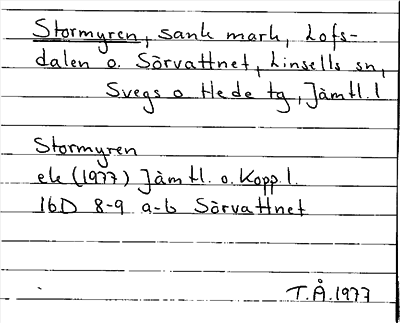 Stormyren, sank mark, Lofs-
dalen o. Sörvattnet, Linsells sn,
Svegs o Hede tg, Jämtl. l
Stormyren
ek (1977) Jämtl. o. Kopp. l.
16D 8-9 a-b Sörvattnet
T.Å. 1977